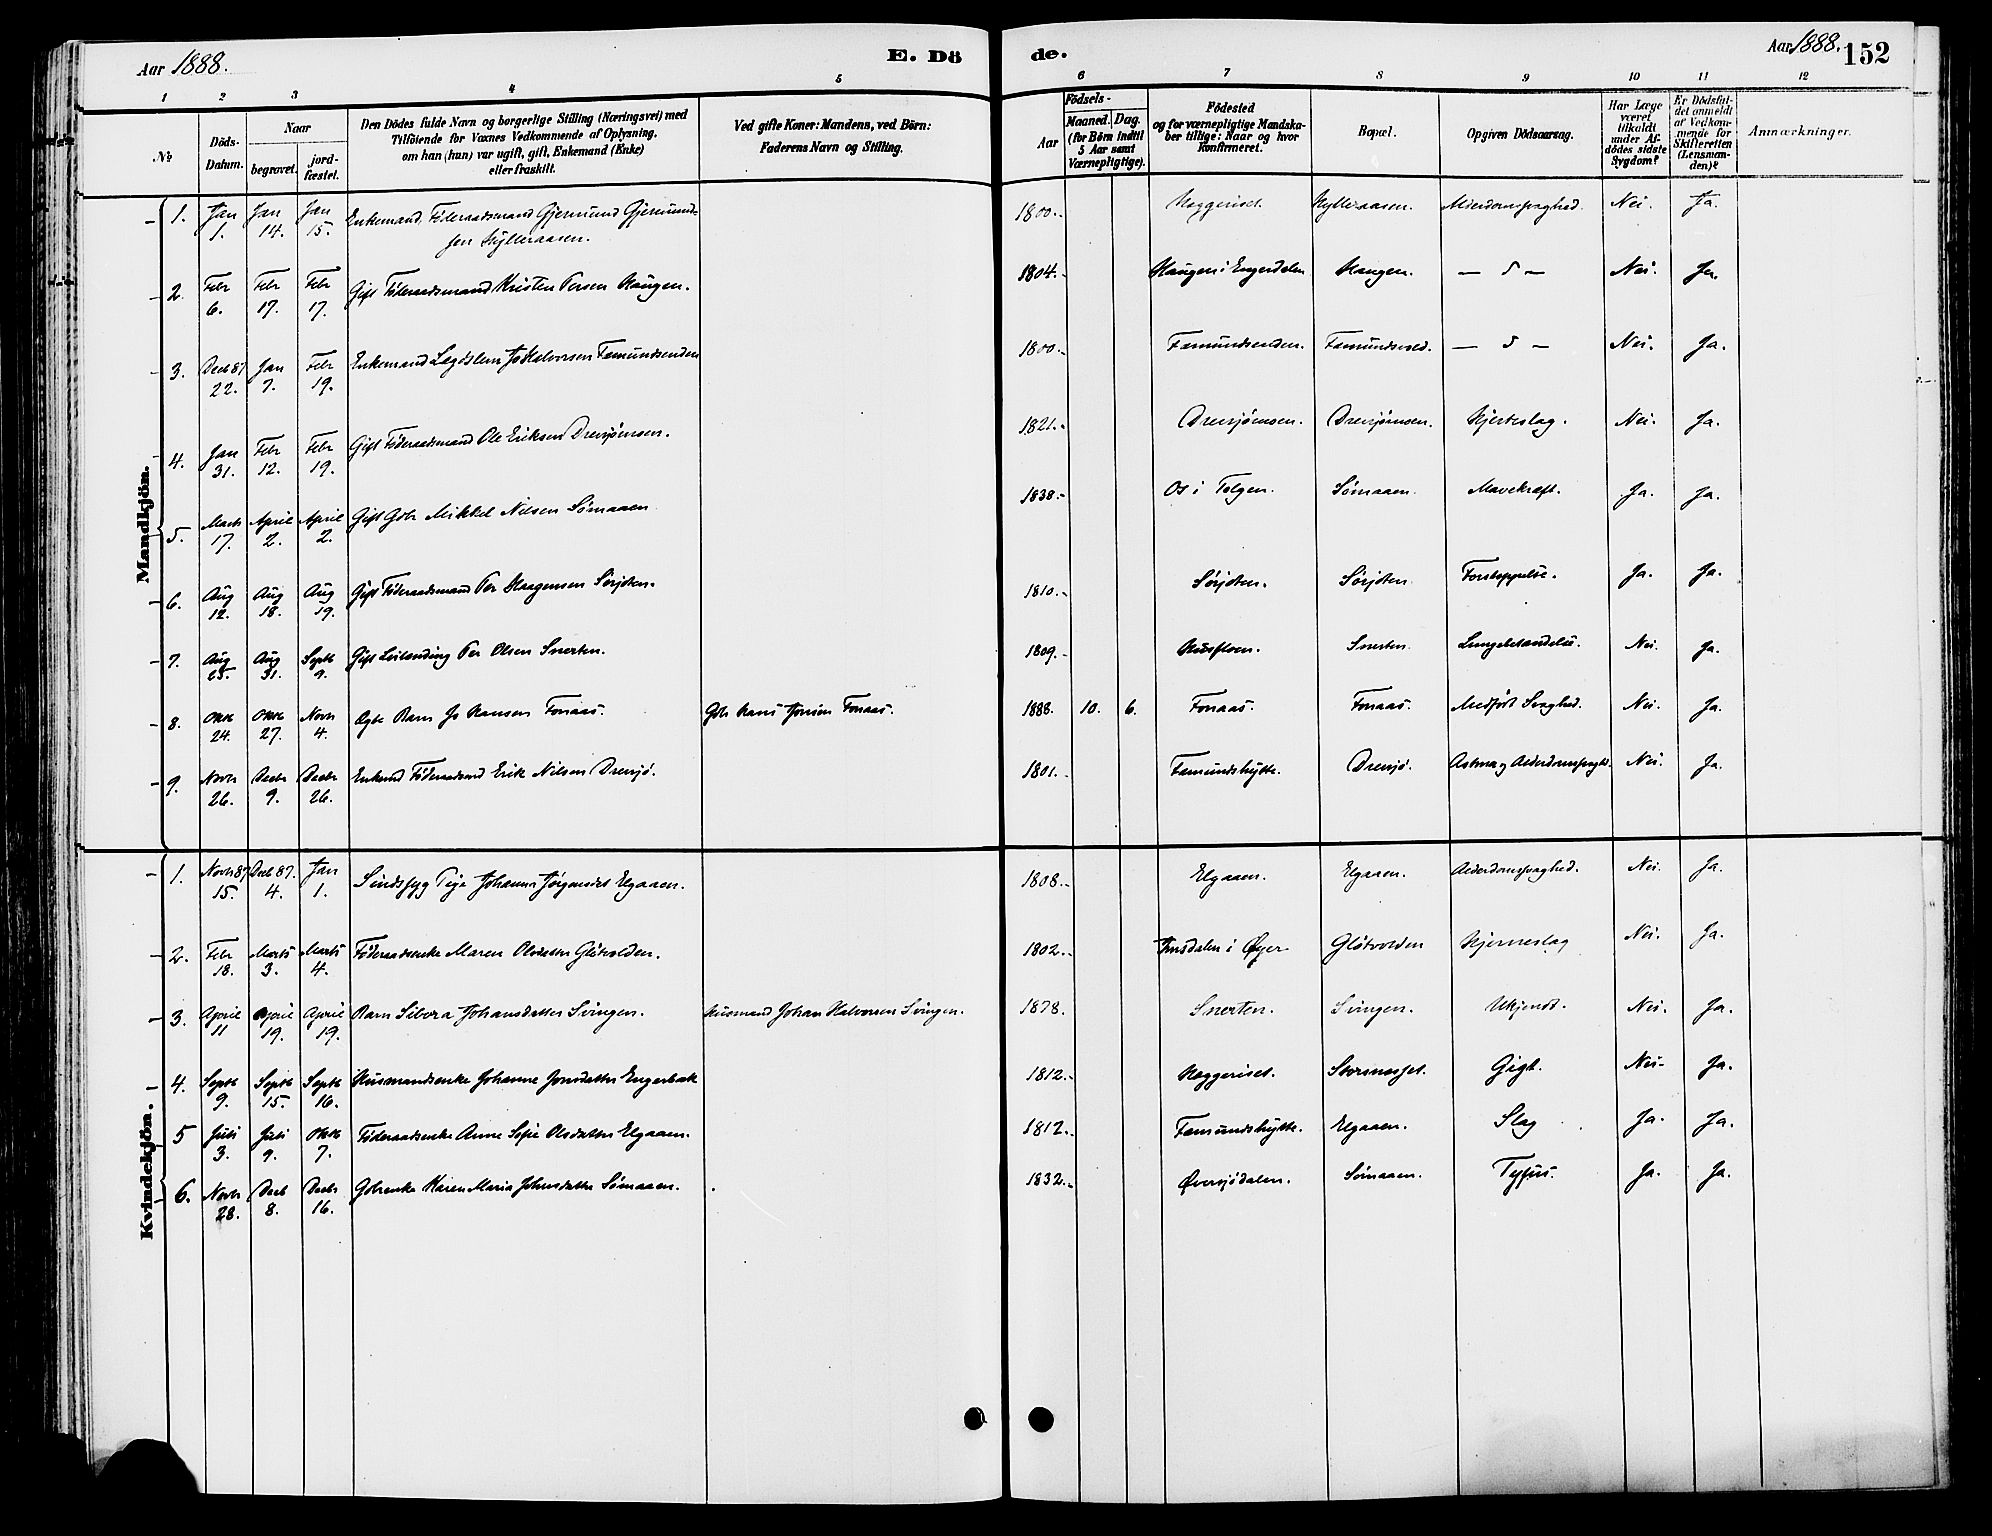 Aar 1888.
E. Dö
de.
Aar 1888.
152
1 2 3 4 5 6 7 8 9 10 11 12
№
Döds-Datum.
Naar
begravet.
jord-fæstet.
Den Dödes fulde Navn og borgerlige Stilling (Næringsvei) med
Tilföiende for Voxnes Vedkommende af Oplysning,
om han (hun) var ugift, gift, Enkemand (Enke)
eller fraskilt.
Ved gifte Koner: Mandens, ved Börn:
Faderens Navn og Stilling.
Födsels-
Aar
Maaned. Dag.
(for Börn indtil
5 Aar samt
Værnepligtige).
Födested
og for værnepligtige Mandska-
ber tillige: Naar og hvor
konfirmeret.
Bopæl.
Opgiven Dödsaarsag.
Har Læge
været
tilkaldt
under Af-
dödes sidste
Sygdom?
Er Dödsfal-
det anmeldt
af Vedkom-
mende for
Skifteretten
(Lensman-
den)?
Anmærkninger.
Mandkjön.
1. Jan 1. Jan 14. Jan 15. Enkemand Föderaadsmand Gjermund Gjermund-
sen Hylleraasen. 1800. Heggeriset. Hylleraasen. Alderdomssvaghed. Nei. Ja.
2. Febr 6. Febr 17. Febr 17. Gift Föderaadsmand Kristen Persen Haugen. 1804. Haugen i Engerdalen Haugen. — 5 — Nei. Ja.
3. Decb 87 22. Jan 7. Febr 19. Enkemand Lægdslem Jo Halvorsen Fæmundsenden 1800. Fæmundsenden. Fæmundsend. — 5 — Nei. Ja.
4. Jan 31. Febr 12. Febr 19. Gift Föderaadsmand Ole Eriksen Drevsjömoen. 1821. Drevsjömoen. Drevsjömoen. Hjerteslag. Nei. Ja.
5. Marts 17. April 2. April 2. Gift Gbr Mikkel Nilsen Sömaaen 1838. Os i Tolgen. Sömaaen. Mavekræft. Ja. Ja.
6. Aug 12. Aug 18. Aug 19. Gift Föderaadsmand Per Haagensen Sörjoten. 1810. Sörjoten. Sörjoten. Forstoppelse. Ja. Ja.
7. Aug 23. Aug 31. Septb 9. Gift Leilending Per Olsen Snerten. 1809. Husfloen. Snerten. Lungebetændelse. Nei. Ja.
8. Oktb 24. Oktb 27. Novb 4. Ægte Barn Jo Hansen Fonaas. Gbr Hans Jonsen Fonaas. 1888. 10. 6. Fonaas. Fonaas. Medfödt Svaghed. Nei. Ja.
9. Novb 26. Decbr 9. Decbr 26. Enkemd Föderaadsmd Erik Nilsen Drevsjö. 1801. Fæmundshytte. Drevsjö. Astma og Alderdomssvaghd. Nei. Ja.
Kvindekjön.
1. Novb 87 15. Decb 87. 4. Jan 1. Sindssyg Pige Johanna Jörgensdt Elgaaen. 1808. Elgaaen. Elgaaen. Alderdomssvaghed. Nei. Ja.
2. Febr 18. Marts 3. Marts 4. Föderaadsenke Maren Olsdatter Glötvolden. 1802. Imsdalen i Øyer Glötvolden Hjerneslag Nei. Ja.
3. April 11 April 19. April 19. Barn Sibora Johansdatter Svingen. Husmand Johan Halvorsen Svingen. 1878. Snerten. Svingen. Ukjendt. Nei. Ja.
4. Septb 9. Septb 15. Septb 16. Husmandsenke Johanne Jonsdatter Engerbæk 1812. Heggeriset. Storsnæsset. Gigt. Nei. Ja.
5 Juli 3. Juli 9. Oktb 7. Föderaadsenke Anne Sofie Olsdatter Elgaaen. 1812. Fæmundshytte. Elgaaen. Slag Ja. Ja.
6. Novb 28. Decb 8. Decbr 16. Gbrenke Karen Maria Johnsdatter Sömaaen. 1832. Øversjödalen. Sömaaen. Tyfus. Ja. Ja.